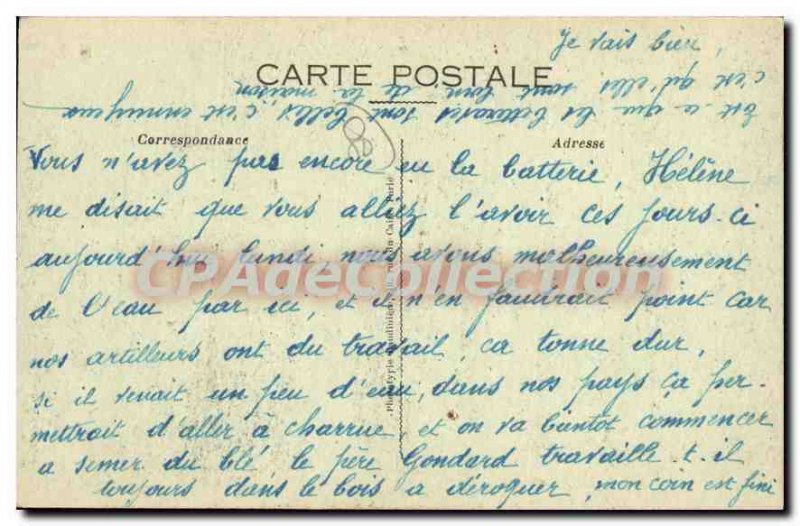 Je vais bien,
CARTE POSTALE
Est-ce que les betteraves sont belles, c'est ennuyeux
c'est qu'elles sont loin de la maison
Correspondance
Adresse
Vous n'avez pas encore eu la batterie, Hélène
me disait que vous alliez l'avoir ces jours-ci
aujourd'hui lundi nous avons malheureusement
de l'eau par ici, et il n'en faudrait point car
nos artilleurs ont du travail, ca tonne dur,
si il venait un peu d'eau, dans nos pays ça per-
mettrait d'aller à charrue et on va bientot commencer
a semer du blé le père Gondard travaille-t-il
toujours dans le bois a déroquer, mon coin est fini
rue du Caire Paris
CPAdeCollection